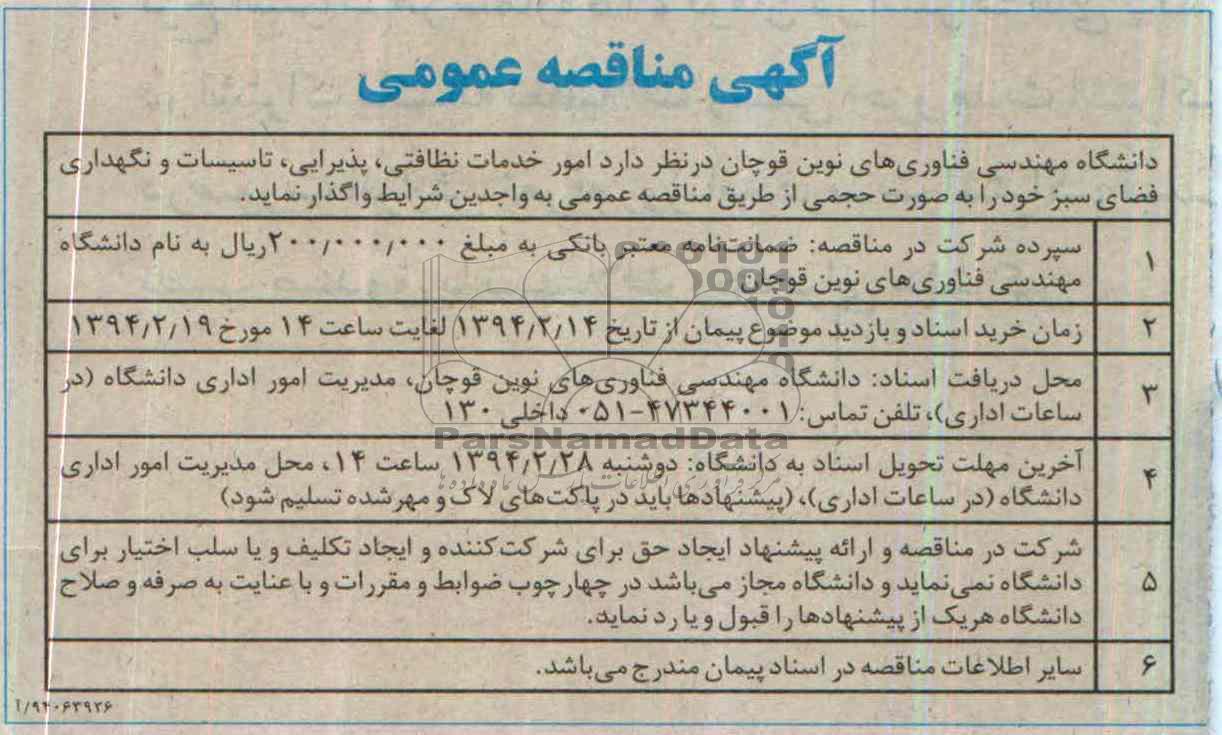 آگهی مناقصه عمومی
دانشگاه مهندسی فناوری‌های نوین قوچان درنظر دارد امور خدمات نظافتی، پذیرایی، تاسیسات و نگهداری
فضای سبز خود را به صورت حجمی از طریق مناقصه عمومی به واجدین شرایط واگذار نماید.
۱ سپرده شرکت در مناقصه: ضمانتنامه معتبر بانکی به مبلغ ۲۰۰/۰۰۰/۰۰۰ریال به نام دانشگاه
مهندسی فناوری‌های نوین قوچان
۲ زمان خرید اسناد و بازدید موضوع پیمان از تاریخ ۱۳۹۴/۲/۱۴ لغایت ساعت ۱۴ مورخ ۱۳۹۴/۲/۱۹
۳ محل دریافت اسناد: دانشگاه مهندسی فناوری‌های نوین قوچان، مدیریت امور اداری دانشگاه (در
ساعات اداری)، تلفن تماس: ۴۷۳۴۴۰۰۱-۰۵۱ داخلی ۱۳۰
ParsNamadData
۴ آخرین مهلت تحویل اسناد به دانشگاه: دوشنبه ۱۳۹۴/۲/۲۸ ساعت ۱۴، محل مدیریت امور اداری
دانشگاه (در ساعات اداری)، (پیشنهادها باید در پاکت‌های لاک و مهر شده تسلیم شود)
۵ شرکت در مناقصه و ارائه پیشنهاد ایجاد حق برای شرکت‌کننده و ایجاد تکلیف و یا سلب اختیار برای
دانشگاه نمی‌نماید و دانشگاه مجاز می‌باشد در چهارچوب ضوابط و مقررات و با عنایت به صرفه و صلاح
دانشگاه هریک از پیشنهادها را قبول و یا رد نماید.
۶ سایر اطلاعات مناقصه در اسناد پیمان مندرج می‌باشد.